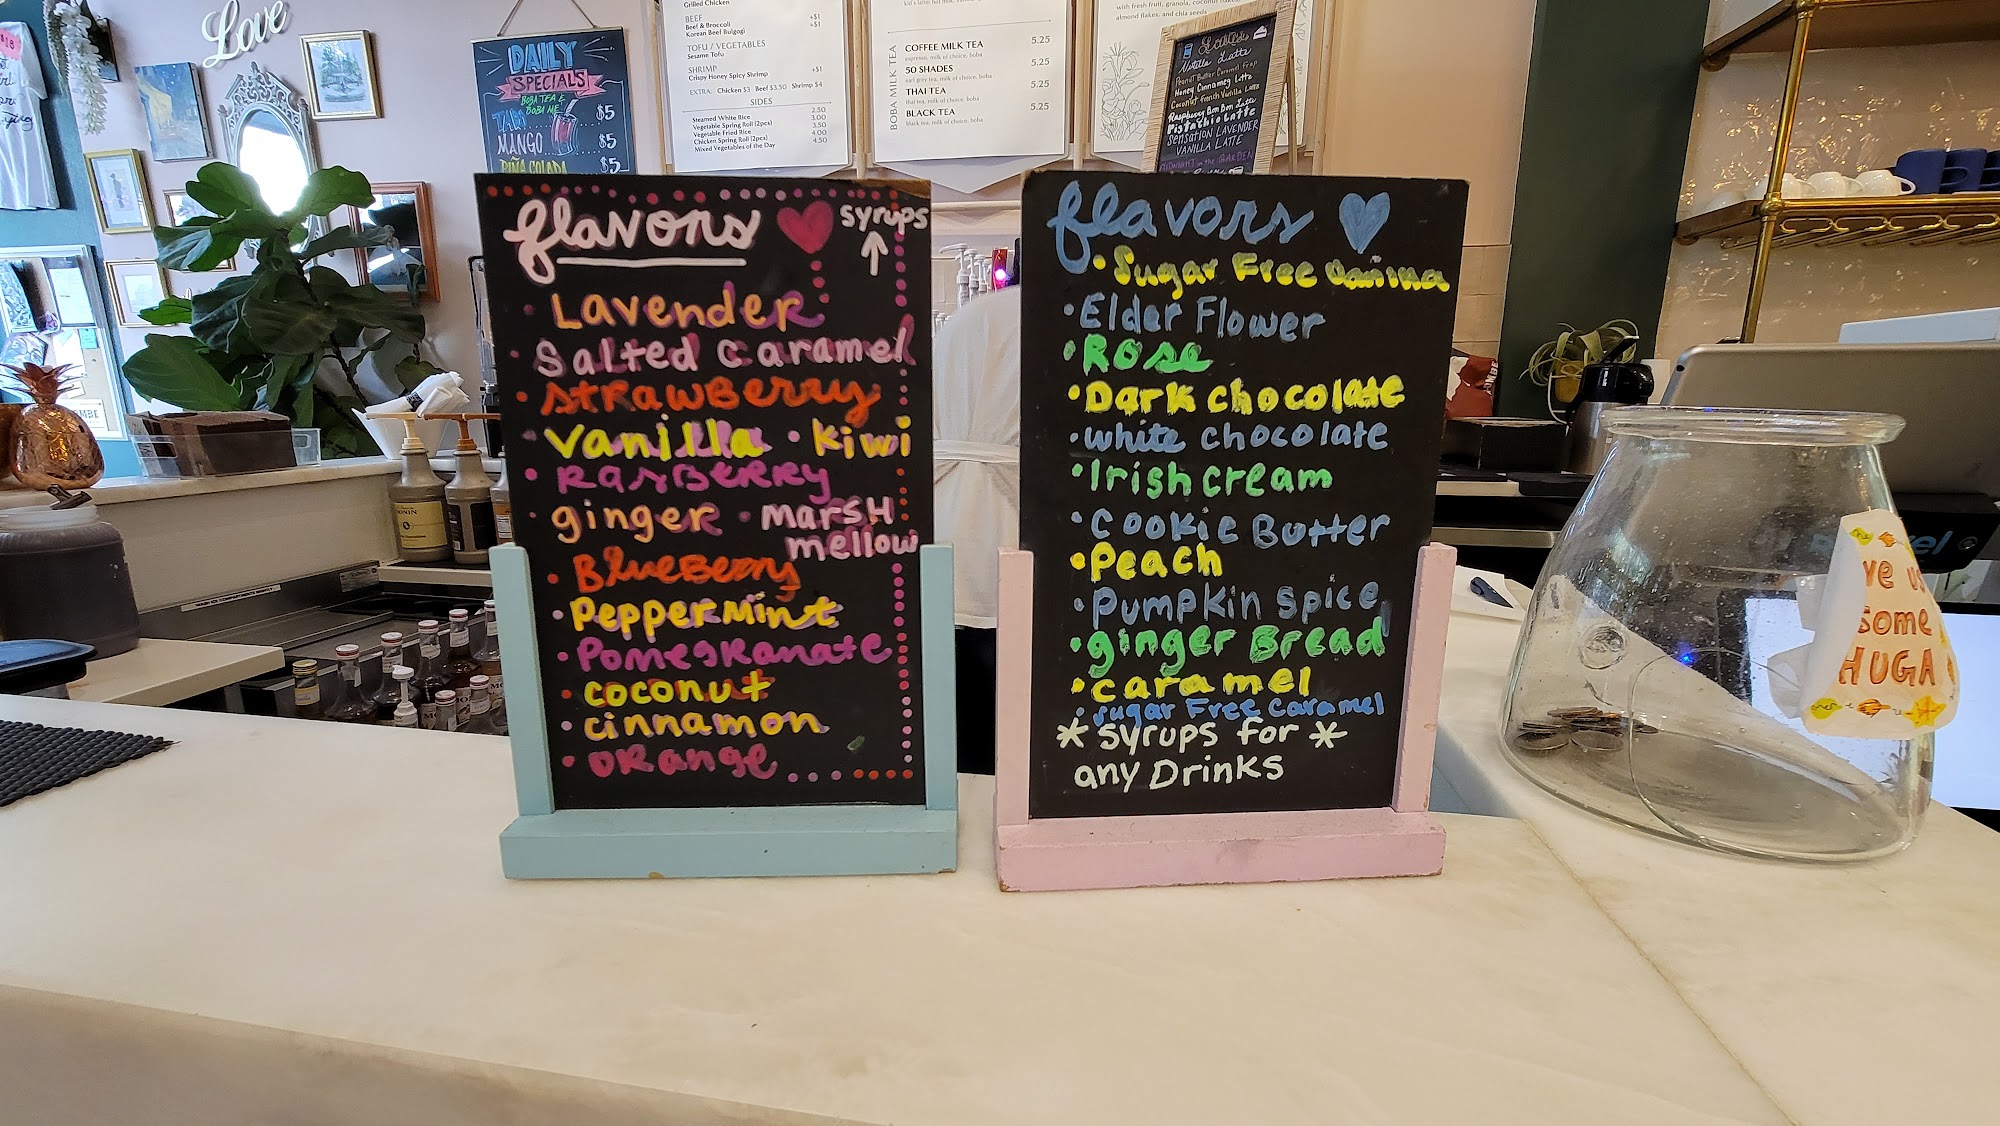 Love
$18
DAILY
SPECIALS
BOBA TEA &
BOBA ME
TARO
$5
MANGO
$5
PIÑA COLADA
$5
Grilled Chicken
BEEF +$1
Beef & Broccoli +$1
Korean Beef Bulgogi
TOFU / VEGETABLES
Sesame Tofu
SHRIMP +$1
Crispy Honey Spicy Shrimp
EXTRA: Chicken $3 Beef $3.50 Shrimp $4
SIDES
Steamed White Rice 2.50
Vegetable Spring Roll (2pcs) 3.00
Vegetable Fried Rice 3.50
Chicken Spring Roll (2pcs) 4.00
Mixed Vegetables of the Day 4.50
BOBA MILK TEA
COFFEE MILK TEA 5.25
espresso, milk of choice, boba
50 SHADES 5.25
earl grey tea, milk of choice, boba
THAI TEA 5.25
thai tea, milk of choice, boba
BLACK TEA 5.25
black tea, milk of choice, boba
with fresh fruit, granola, coconut flakes,
almond flakes, and chia seeds
Nutella Latte
Peanut Butter Caramel Frap
Honey Cinnamon Latte
Coconut French Vanilla Latte
Raspberry Bon Bon Latte
Pistachio Latte
SENSATION LAVENDER
VANILLA LATTE
MIDNIGHT in the GARDEN
flavors
syrups
Lavender
Salted Caramel
Strawberry
Vanilla • Kiwi
• Rasberry
• ginger • Marsh
mellow
• Blueberry
• Peppermint
• Pomegranate
• coconut
• cinnamon
• Orange
flavors
• Sugar Free Vanilla
• Elder Flower
• Rose
• Dark chocolate
• white chocolate
• Irish cream
• Cookie Butter
• Peach
• Pumpkin spice
• ginger Bread
• caramel
• sugar Free Caramel
* syrups for *
any Drinks
ve us
some
HUGA